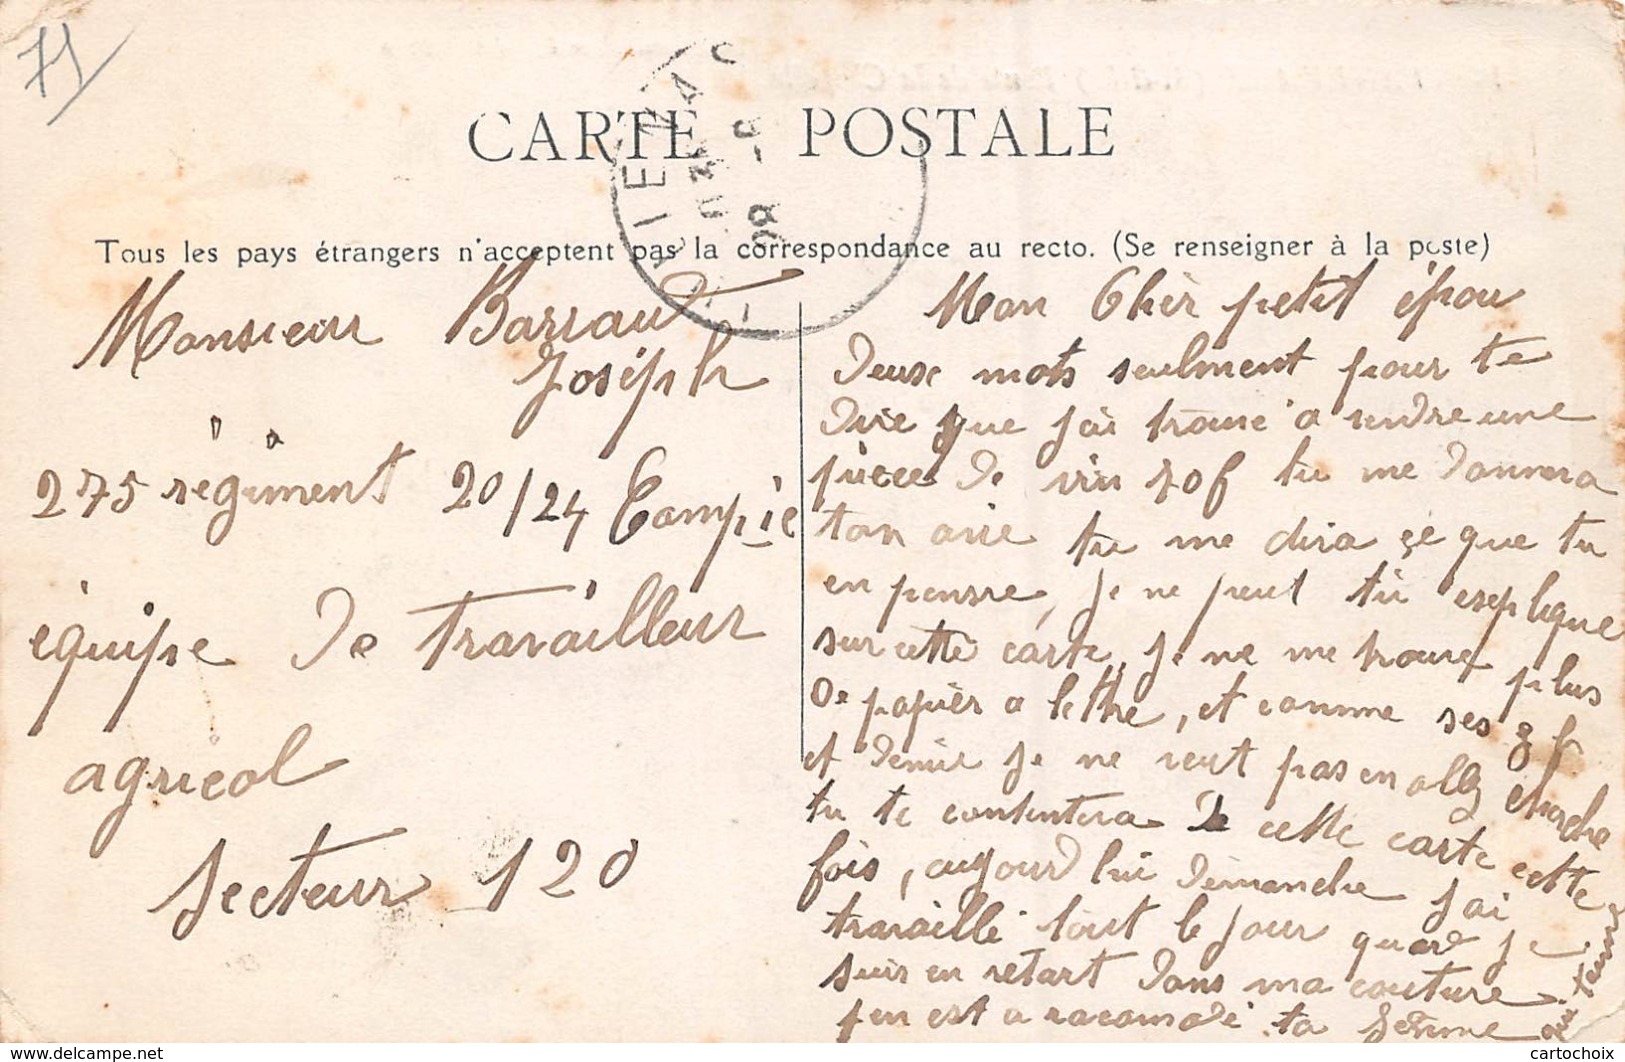 71
CARTE POSTALE
Tous les pays étrangers n'acceptent pas la correspondance au recto. (Se renseigner à la poste)
Monsieur Barraut
Joséph
275 régiment 20/24 Compie
équipe de travailleur
agricol
Secteur 120
Mon Chèr petit épou
deux mots seulment pour te
dire que jai trouvé a vendre une
pièce de vin 70f tu me donnera
ton avie tu me dira çe que tu
en pensse, je ne peut tu esplique
sur cette carte, je ne me trouve plus
de papièr a lettre, et comme ses 8 h
et demie je ne veut pas en allé cherche
tu te contentera de cette carte cette
fois, aujourd hui dimanche j'ai
travaillé tout le jour quand je
suis en retart dans ma couture
jen est a racomodé ta femme
qui taime
www.delcampe.net
cartochoix